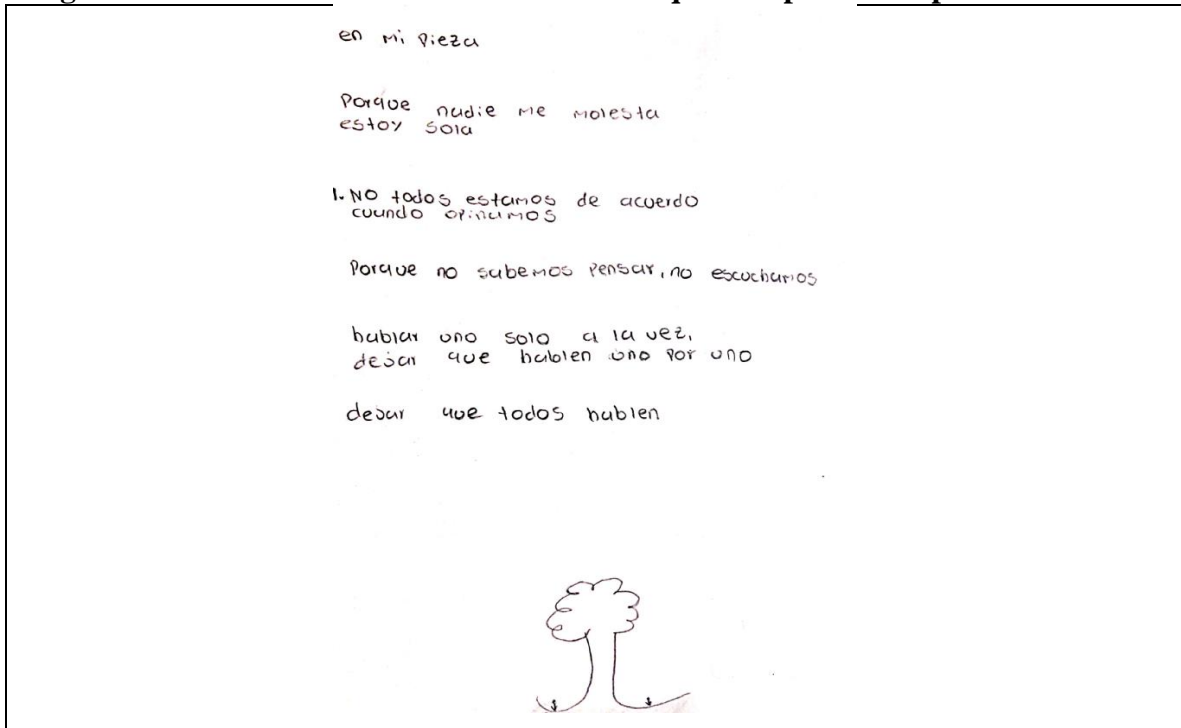 en mi pieza
Porque nadie me molesta
estoy sola
1. NO todos estamos de acuerdo
cuando opinamos
Porque no sabemos pensar, no escuchamos
hablar uno solo a la vez,
dejar que hablen uno por uno
dejar que todos hablen